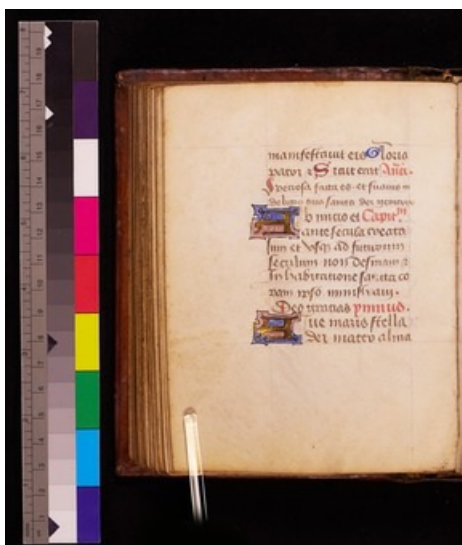 manifestaui eis Gloria
patri et Sicut erat Añā.
Speciosa facta es et suauis in
delitiis tuis sancta dei genitrix
Ab inicio et Capitm
ante secula creata
sum et vsq3 ad futurum
seculum non desinam et
In habitatione sancta co
ram ipso ministraui.
Deo gracias ymnus.
Aue maris stella
Dei mater alma